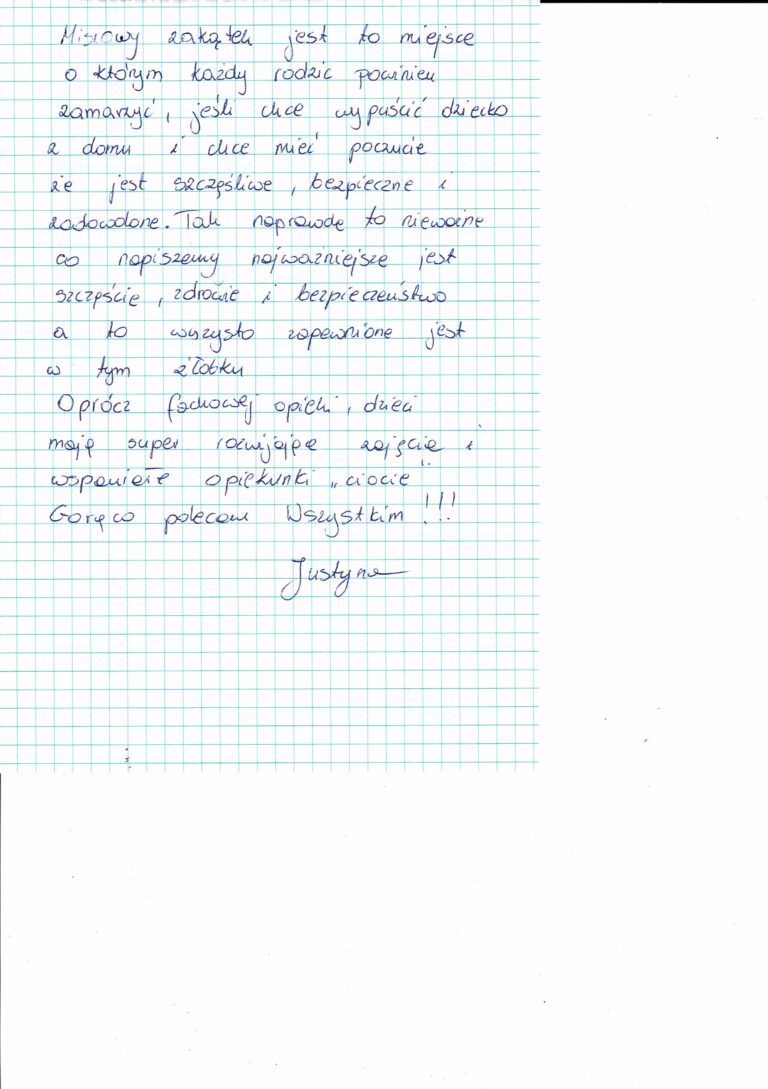 Misiowy zakątek jest to miejsce
o którym każdy rodzic powinien
zamarzyć, jeśli chce wypuścić dziecko
z domu i chce mieć poczucie
że jest szczęśliwe, bezpieczne i
zadowolone. Tak naprawdę to nieważne
co napiszemy najważniejsze jest
szczęście, zdrowie i bezpieczeństwo
a to wszysto zapewnione jest
w tym żłobku
Oprócz fachowej opieki, dzieci
mają super rozwijające zajęcia i
wspaniałe opiekunki „ciocie"
Gorąco polecam Wszystkim !!!
Justyna